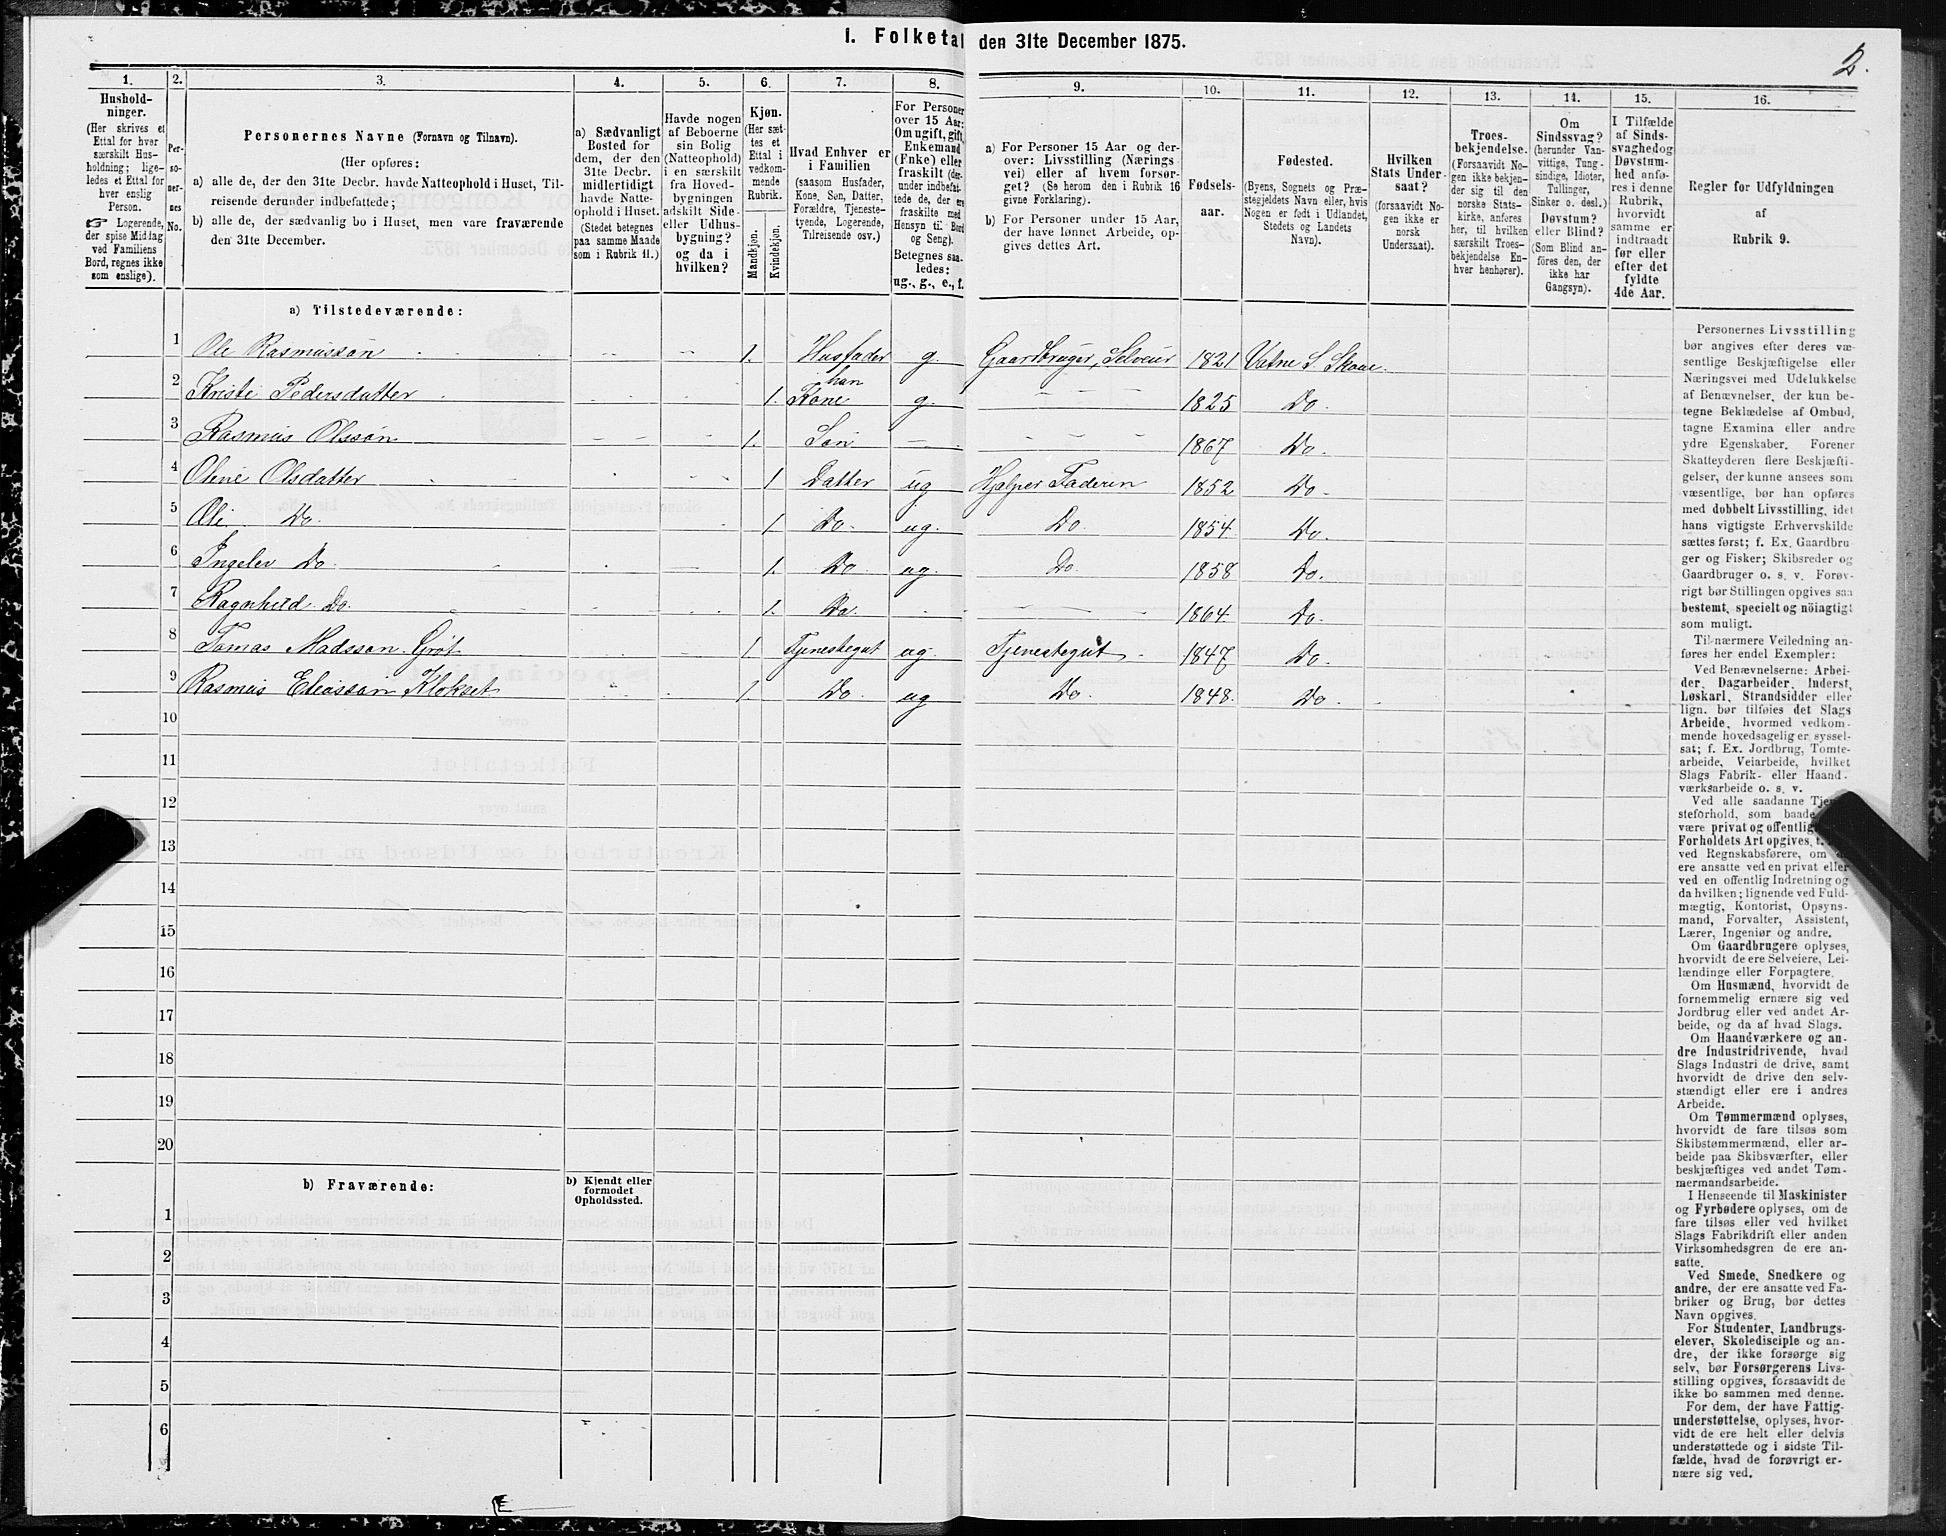 I. Folketal den 31te December 1875.
2.
1. 2. 3. 4. 5. 6. 7. 8. 9. 10. 11. 12. 13. 14. 15. 16.
Hushold-
ninger.
(Her skrives et
Ettal for hver
særskilt Hus-
holdning; lige-
ledes et Ettal for
hver enslig
Person.
☞ Logerende,
der spise Middag
ved Familiens
Bord, regnes ikke
som enslige).
Per-
so-
ner-
nes
No.
Personernes Navne (Fornavn og Tilnavn).
(Her opføres:
a) alle de, der den 31te Decbr. havde Natteophold i Huset, Til-
reisende derunder indbefattede;
b) alle de, der sædvanlig bo i Huset, men vare fraværende
den 31te December.
a) Sædvanligt
Bosted for
dem, der den
31te Decbr.
midlertidigt
havde Natte-
ophold i Huset.
(Stedet betegnes
paa samme Maade
som i Rubrik 11.)
Havde nogen
af Beboerne
sin Bolig
(Natteophold)
i en særskilt
fra Hoved-
bygningen
adskilt Side-
eller Udhus-
bygning?
og da i
hvilken?
Kjøn.
(Her sæt-
tes et
Ettal i
vedkom-
mende
Rubrik.
Mandkjøn.
Kvindekjøn.
Hvad Enhver er
i Familien
(saasom Husfader,
Kone, Søn, Datter,
Forældre, Tjeneste-
tyende, Logerende,
Tilreisende osv.)
For Personer
over 15 Aar:
Om ugift, gift,
Enkemand
(Enke) eller
fraskilt (der-
under indbefat-
tede de, der ere
fraskilte med
Hensyn til Bord
og Seng).
Betegnes saa-
ledes:
ug., g., e., f.
a) For Personer 15 Aar og der-
over: Livsstilling (Nærings
vei) eller af hvem forsør-
get? (Se herom den i Rubrik 16
givne Forklaring).
b) For Personer under 15 Aar,
der have lønnet Arbeide, op-
gives dettes Art.
Fødsels-
aar.
Fødested.
(Byens, Sognets og Præ-
stegjeldets Navn eller, hvis
Nogen er født i Udlandet,
Stedets og Landets
Navn).
Hvilken
Stats Under-
saat?
(forsaavidt No-
gen ikke er
norsk
Undersaat).
Troes-
bekjendelse.
(Forsaavidt No-
gen ikke bekjen-
der sig til den
norske Stats-
kirke, anføres
her, til hvilken
særskilt Troes-
bekjendelse En-
hver henhører).
Om
Sindssvag?
(herunder Van-
vittige, Tung-
sindige, Idioter,
Tullinger,
Sinker o. desl.)
Døvstum?
eller Blind?
(Som Blind an-
føres den, der
ikke har
Gangsyn).
I Tilfælde
af Sinds-
svaghed og
Døvstum-
hed anfø-
res i denne
Rubrik,
hvorvidt
samme er
indtraadt
før eller
efter det
fyldte
4de Aar.
Regler for Udfyldningen
af
Rubrik 9.
a) Tilstedeværende:
1 Ole Rasmussøn 1. Husfader g. Gaardbruger, Selveier 1821 Vatne S. Skoue
han
2 Kristi Pedersdatter 1. Kone g. 1825 Do.
3 Rasmus Olssøn 1. Søn 1867 Do.
4 Oline Olsdatter 1 Datter ug Hjælper Faderen 1852 Do.
5 Oli Do. 1. Do. ug. Do. 1854. Do.
6 Ingelev Do. 1. Do ug. Do. 1858 Do.
7 Ragnhild Do. 1. Do. 1864. Do.
8 Tomas Madssøn Grøt 1. Tjenestegut ug. Tjenestegut 1847 Do.
9 Rasmus Eliassøn Klokset 1. Do. ug Do. 1848. Do.
10
11
12
13
14
15
16
17
18
19
20
b) Fraværende:
b) Kjendt eller
formodet
Opholdssted.
1
2
3
4
5
6
Personernes Livsstilling
bør angives efter deres væ-
sentlige Beskjæftigelse eller
Næringsvei med Udelukkelse
af Benævnelser, der kun be-
tegne Beklædelse af Ombud,
tagne Examina eller andre
ydre Egenskaber. Forener
Skatteyderen flere Beskjæfti-
gelser, der kunne ansees som
væsentlige, bør han opføres
med dobbelt Livsstilling, idet
hans vigtigste Erhvervskilde
sættes først; f. Ex. Gaardbru-
ger og Fisker; Skibsreder og
Gaardbruger o. s. v. Forøv-
rigt bør Stillingen opgives saa
bestemt, specielt og nöiagtigt
som muligt.
Til nærmere Veiledning an-
føres her endel Exempler:
Ved Benævnelserne: Arbei-
der, Dagarbeider, Inderst,
Løskarl, Strandsidder eller
lign. bør tilføies det Slags
Arbeide, hvormed vedkom-
mende hovedsagelig er syssel-
sat; f. Ex. Jordbrug, Tomte-
arbeide, Veiarbeide, hvilket
Slags Fabrik- eller Haand-
værksarbeide o. s. v.
Ved alle saadanne
steforhold, som baade
være privat og offentlig
Forholdets Art opgives,
ved Regnskabsførere, om
ere ansatte ved en privat eller
ved en offentlig Indretning og
da hvilken; lignende ved Fuld-
mægtig, Kontorist, Opsyns-
mand, Forvalter, Assistent,
Lærer, Ingeniør og andre.
Om Gaardbrugere oplyses,
hvorvidt de ere Selveiere, Lei-
lændinge eller Forpagtere.
Om Husmænd, hvorvidt de
fornemmelig ernære sig ved
Jordbrug eller ved andet Ar-
beide, og da af hvad Slags.
Om Haandværkere og an-
dre Industridrivende, hvad
Slags Industri de drive, samt
hvorvidt de drive den selv-
stændigt eller ere i andres
Arbeide.
Om Tømmermænd oplyses,
hvorvidt de fare tilsøs som
Skibstømmermænd, eller ar-
beide paa Skibsværfter, eller
beskjæftiges ved andet Tøm-
mermandsarbeide.
I Henseende til Maskinister
og Fyrbødere oplyses, om de
fare tilsøs eller ved hvilket
Slags Fabrikdrift eller anden
Virksomhedsgren de ere an-
satte.
Ved Smede, Snedkere og
andre, der ere ansatte ved Fa-
briker og Brug, bør dettes
Navn opgives.
For Studenter, Landbrugs-
elever, Skoledisciple og an-
dre, der ikke forsørge sig
selv, bør Forsørgerens Livs-
stilling opgives, forsaavidt de
ikke bo sammen med denne.
For dem, der have Fattig-
understøttelse, oplyses, hvor-
vidt de ere helt eller delvis
understøttede og i sidste Til-
fælde, hvad de forøvrigt er-
nære sig ved.